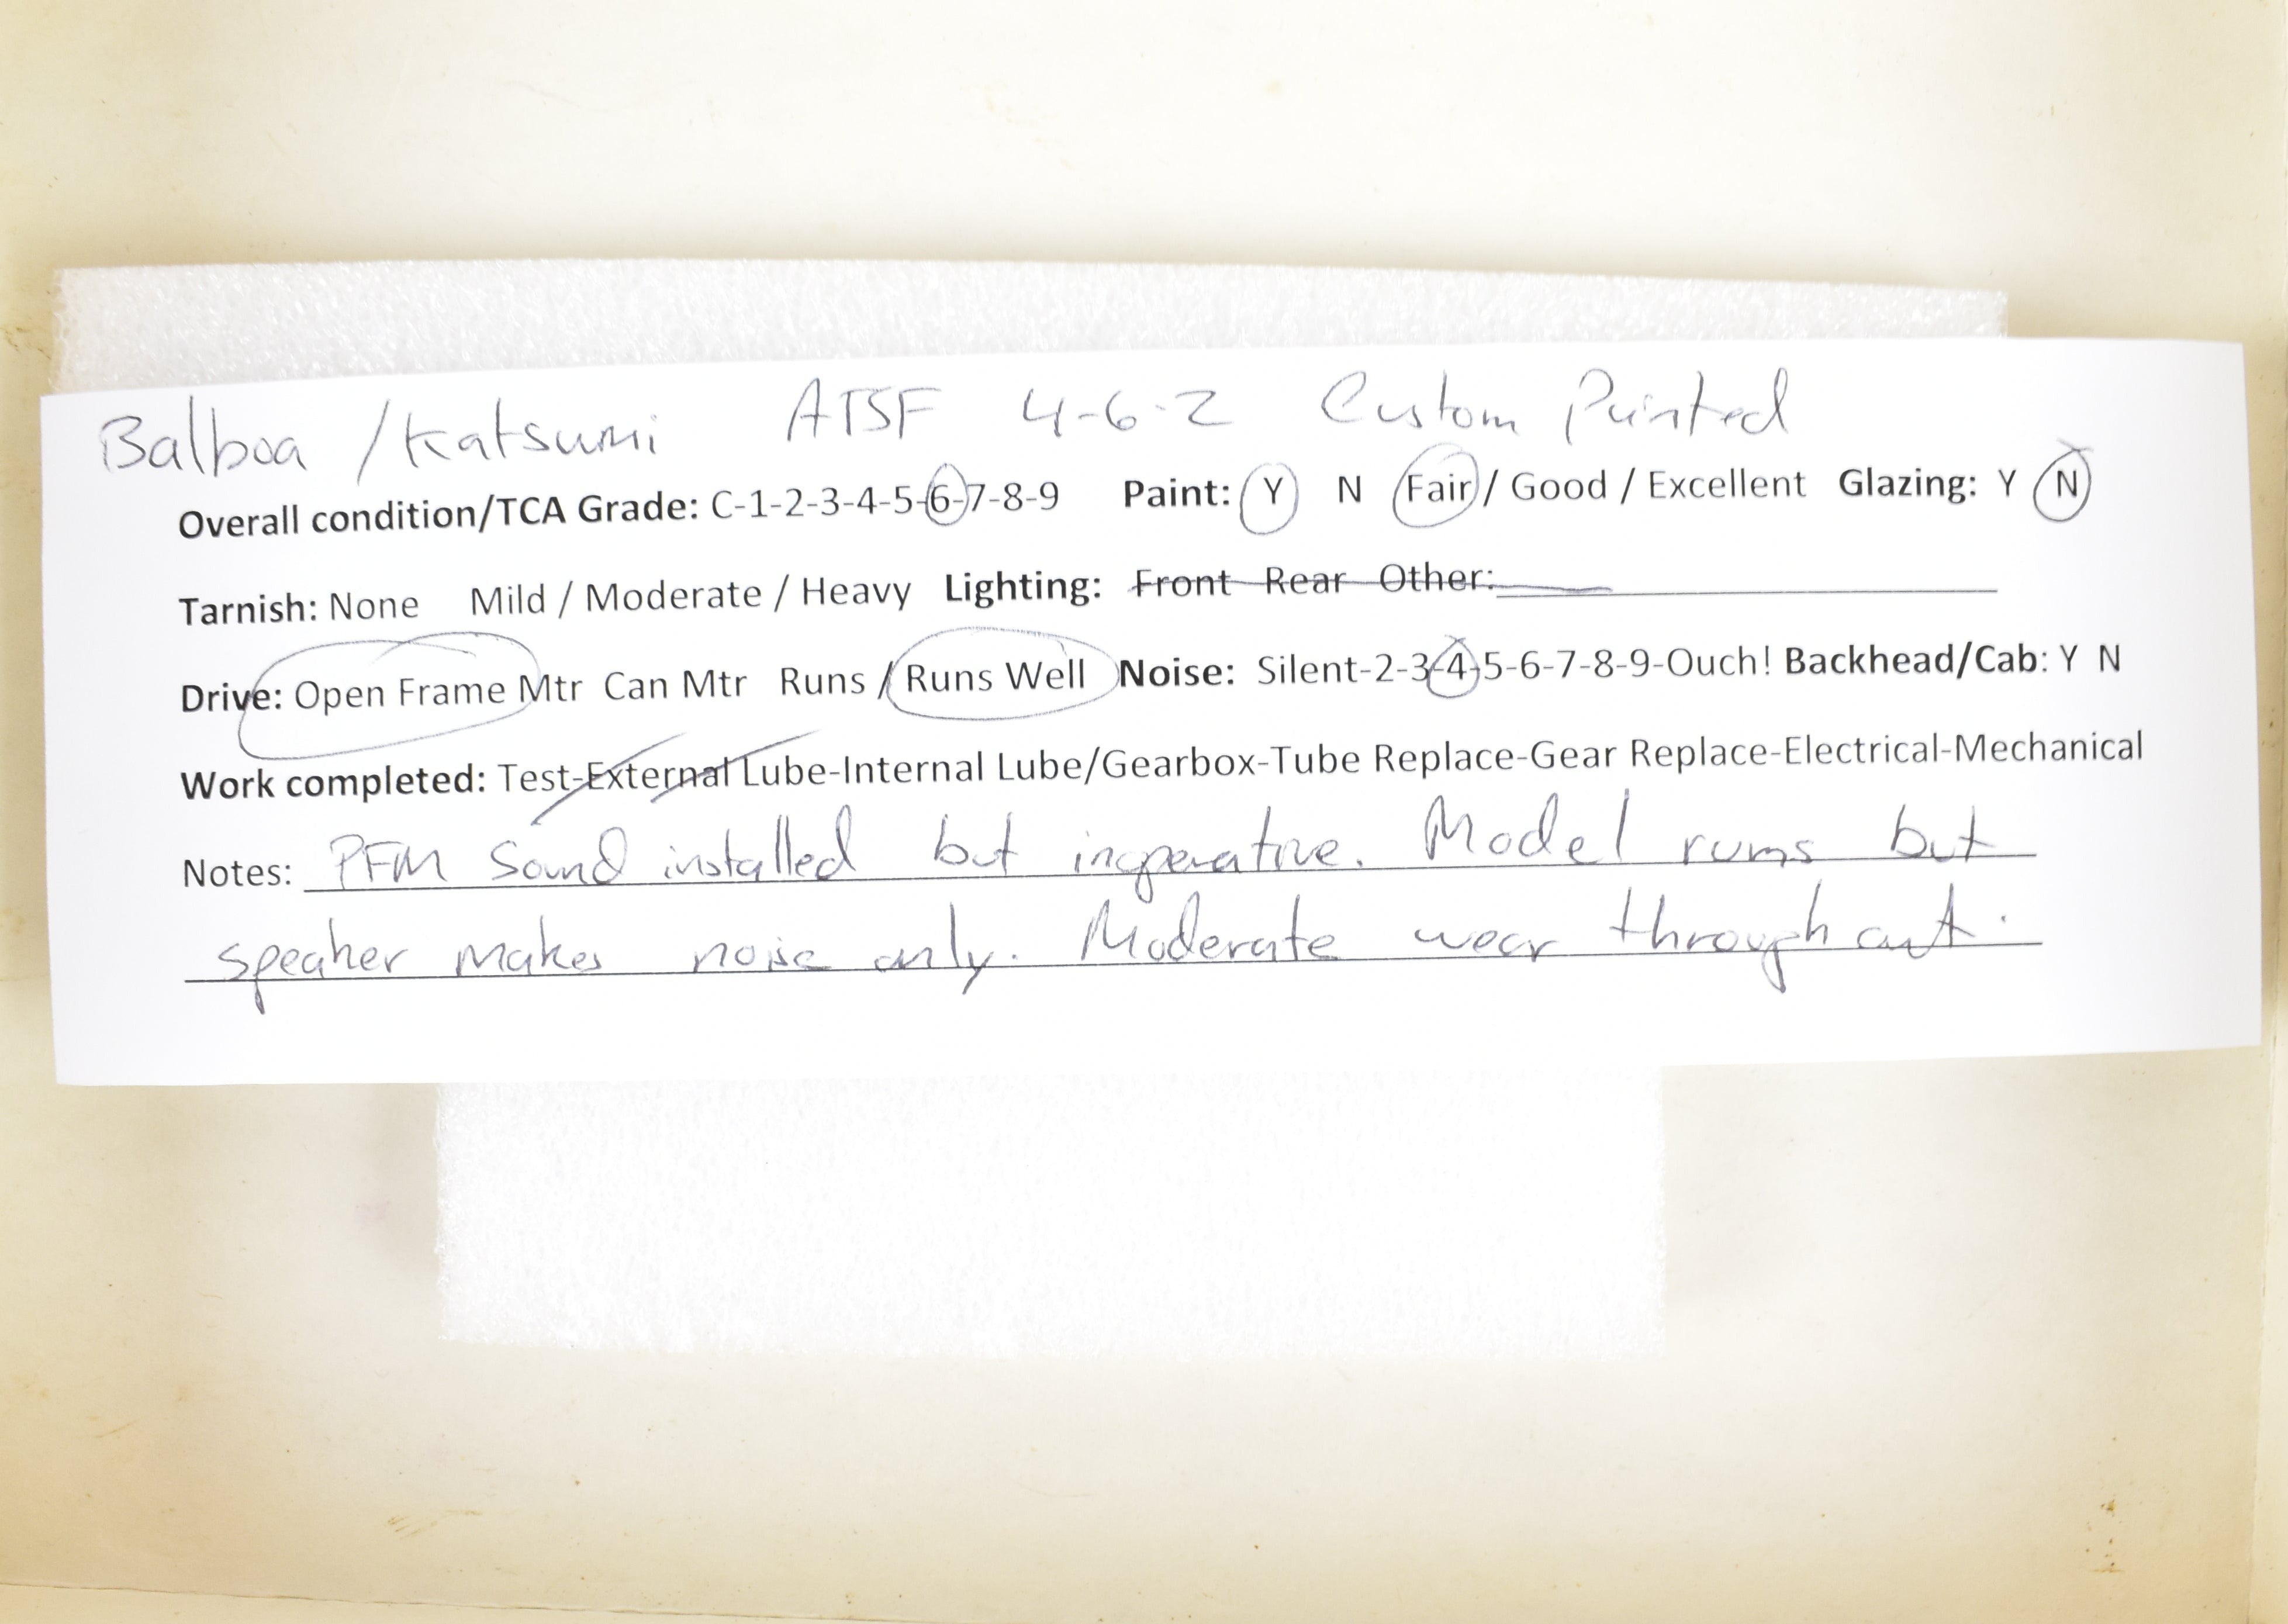 Balboa / Katsumi ATSF 4-6-2 Custom Painted
Overall condition/TCA Grade: C-1-2-3-4-5-6-7-8-9 Paint: Y N Fair / Good / Excellent Glazing: Y N
Tarnish: None Mild / Moderate / Heavy Lighting: Front Rear Other:
Drive: Open Frame Mtr Can Mtr Runs / Runs Well Noise: Silent-2-3-4-5-6-7-8-9-Ouch! Backhead/Cab: Y N
Work completed: Test-External Lube-Internal Lube/Gearbox-Tube Replace-Gear Replace-Electrical-Mechanical
Notes: PFM Sound installed but inoperative. Model runs but
speaker makes noise only. Moderate wear throughout.